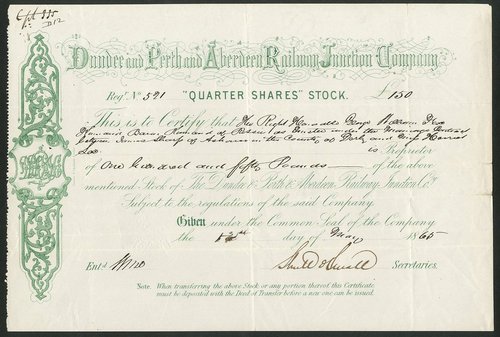 Dundee and Perth and Aberdeen Railway Junction Company
Regd. No 591 "QUARTER SHARES" STOCK. £150
This is to Certify that The Right Honorable George William Fox
Kinnaird Baron Kinnaird of Rossie as Trustee under the Marriage Contract
between James Sharp of in the County of and Miss Harriet
is Proprietor
of One hundred and fifty Pounds of the above
mentioned Stock of The Dundee & Perth & Aberdeen Railway Junction Coy.
Subject to the regulations of the said Company.
Given under the Common Seal of the Company
the day of May 1865
Entd. Secretaries.
Note. When transferring the above Stock or any portion thereof this Certificate
must be deposited with the Deed of Transfer before a new one can be issued.